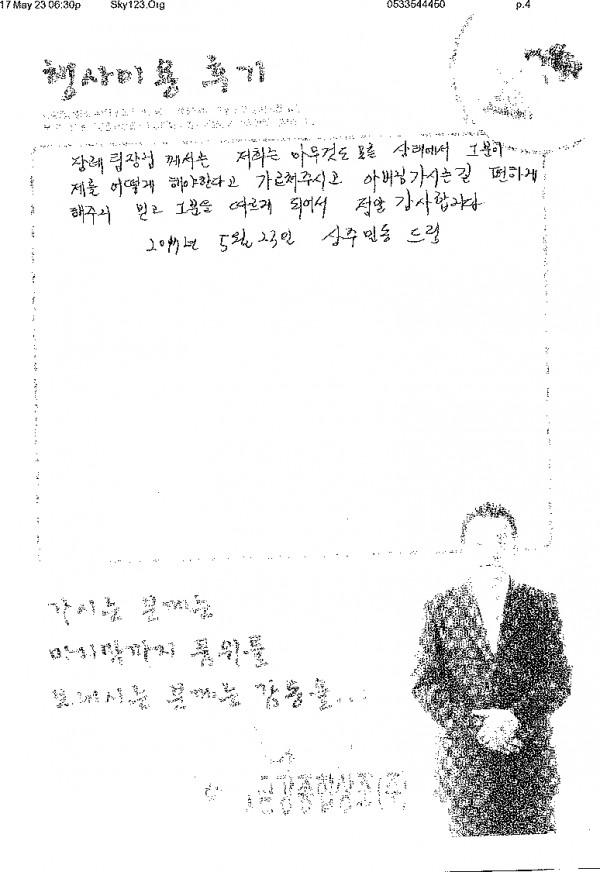 17 May 23 06:30p Sky123.Org 0533544450 p.4
행사이용 후기
장례 팀장님 께서는 저희는 아무것도 모를 상태에서 그분이
제를 어떻게 해야한다고 가르쳐주시고 아버님가시는길 편하게
해주의 믿고 그분을 되어서 정말 감사합니다
2017년 5월 23일 상주 드림
가시는 분께는
마지막까지 품위를
보내시는 분께는 감동을...
금강종합상조(주)